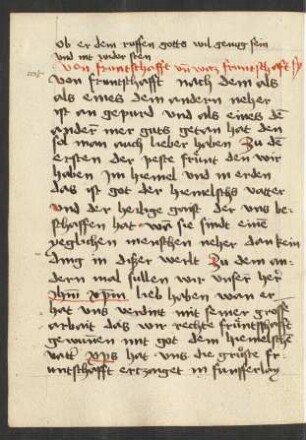 ob er dem ruffen gotts wil genug sein
und nit wider sten
von fruntschafft un waz fruntschafft sy
Von fruntschafft nach dem als
als eines dem andern neher
ist an gepurd und als eines de
ander mer guts getan hat den
sol man auch lieber haben Zu de
ersten der peste frunt den wir
haben jm hiemel und in erden
das ist got der hiemelsch vatter
und der heilige gaist der uns be-
schaffen hat wan sie sindt eine
yeglichen menschen neher dan kein
ding in disser werlt Zu dem an-
dern mal sullen wir unser her
jhm xpm lieb haben wan er
hat uns verdint mit seiner grosse
arbait das wir rechte fruntschafft
gewinen mit got dem hiemelsche
vatt xps hat uns die gröste fr-
untschafft erczaiget in funfferlay